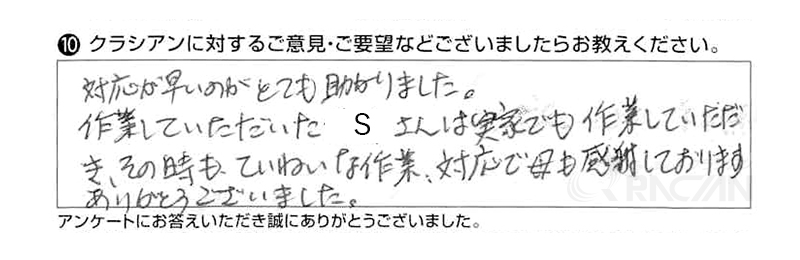 ⑩ クラシアンに対するご意見・ご要望などございましたらお教えください。
対応が早いのがとても助かりました。
作業していただいた S さんは実家でも作業していただ
き、その時も、ていねいな作業、対応で母も感謝しております
ありがとうございました。
QRACIAN
アンケートにお答えいただき誠にありがとうございました。